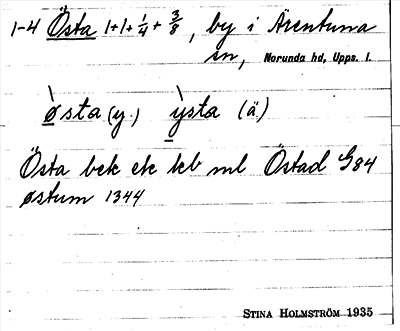 1-4 Östa 1+1+¼+⅜, by i Ärentuna
sn, Norunda hd, Upps. l.
ø̀sta (y.) ỳsta (ä)
Östa bek ek kb ml Östad G84
østum 1344
STINA HOLMSTRÖM 1935